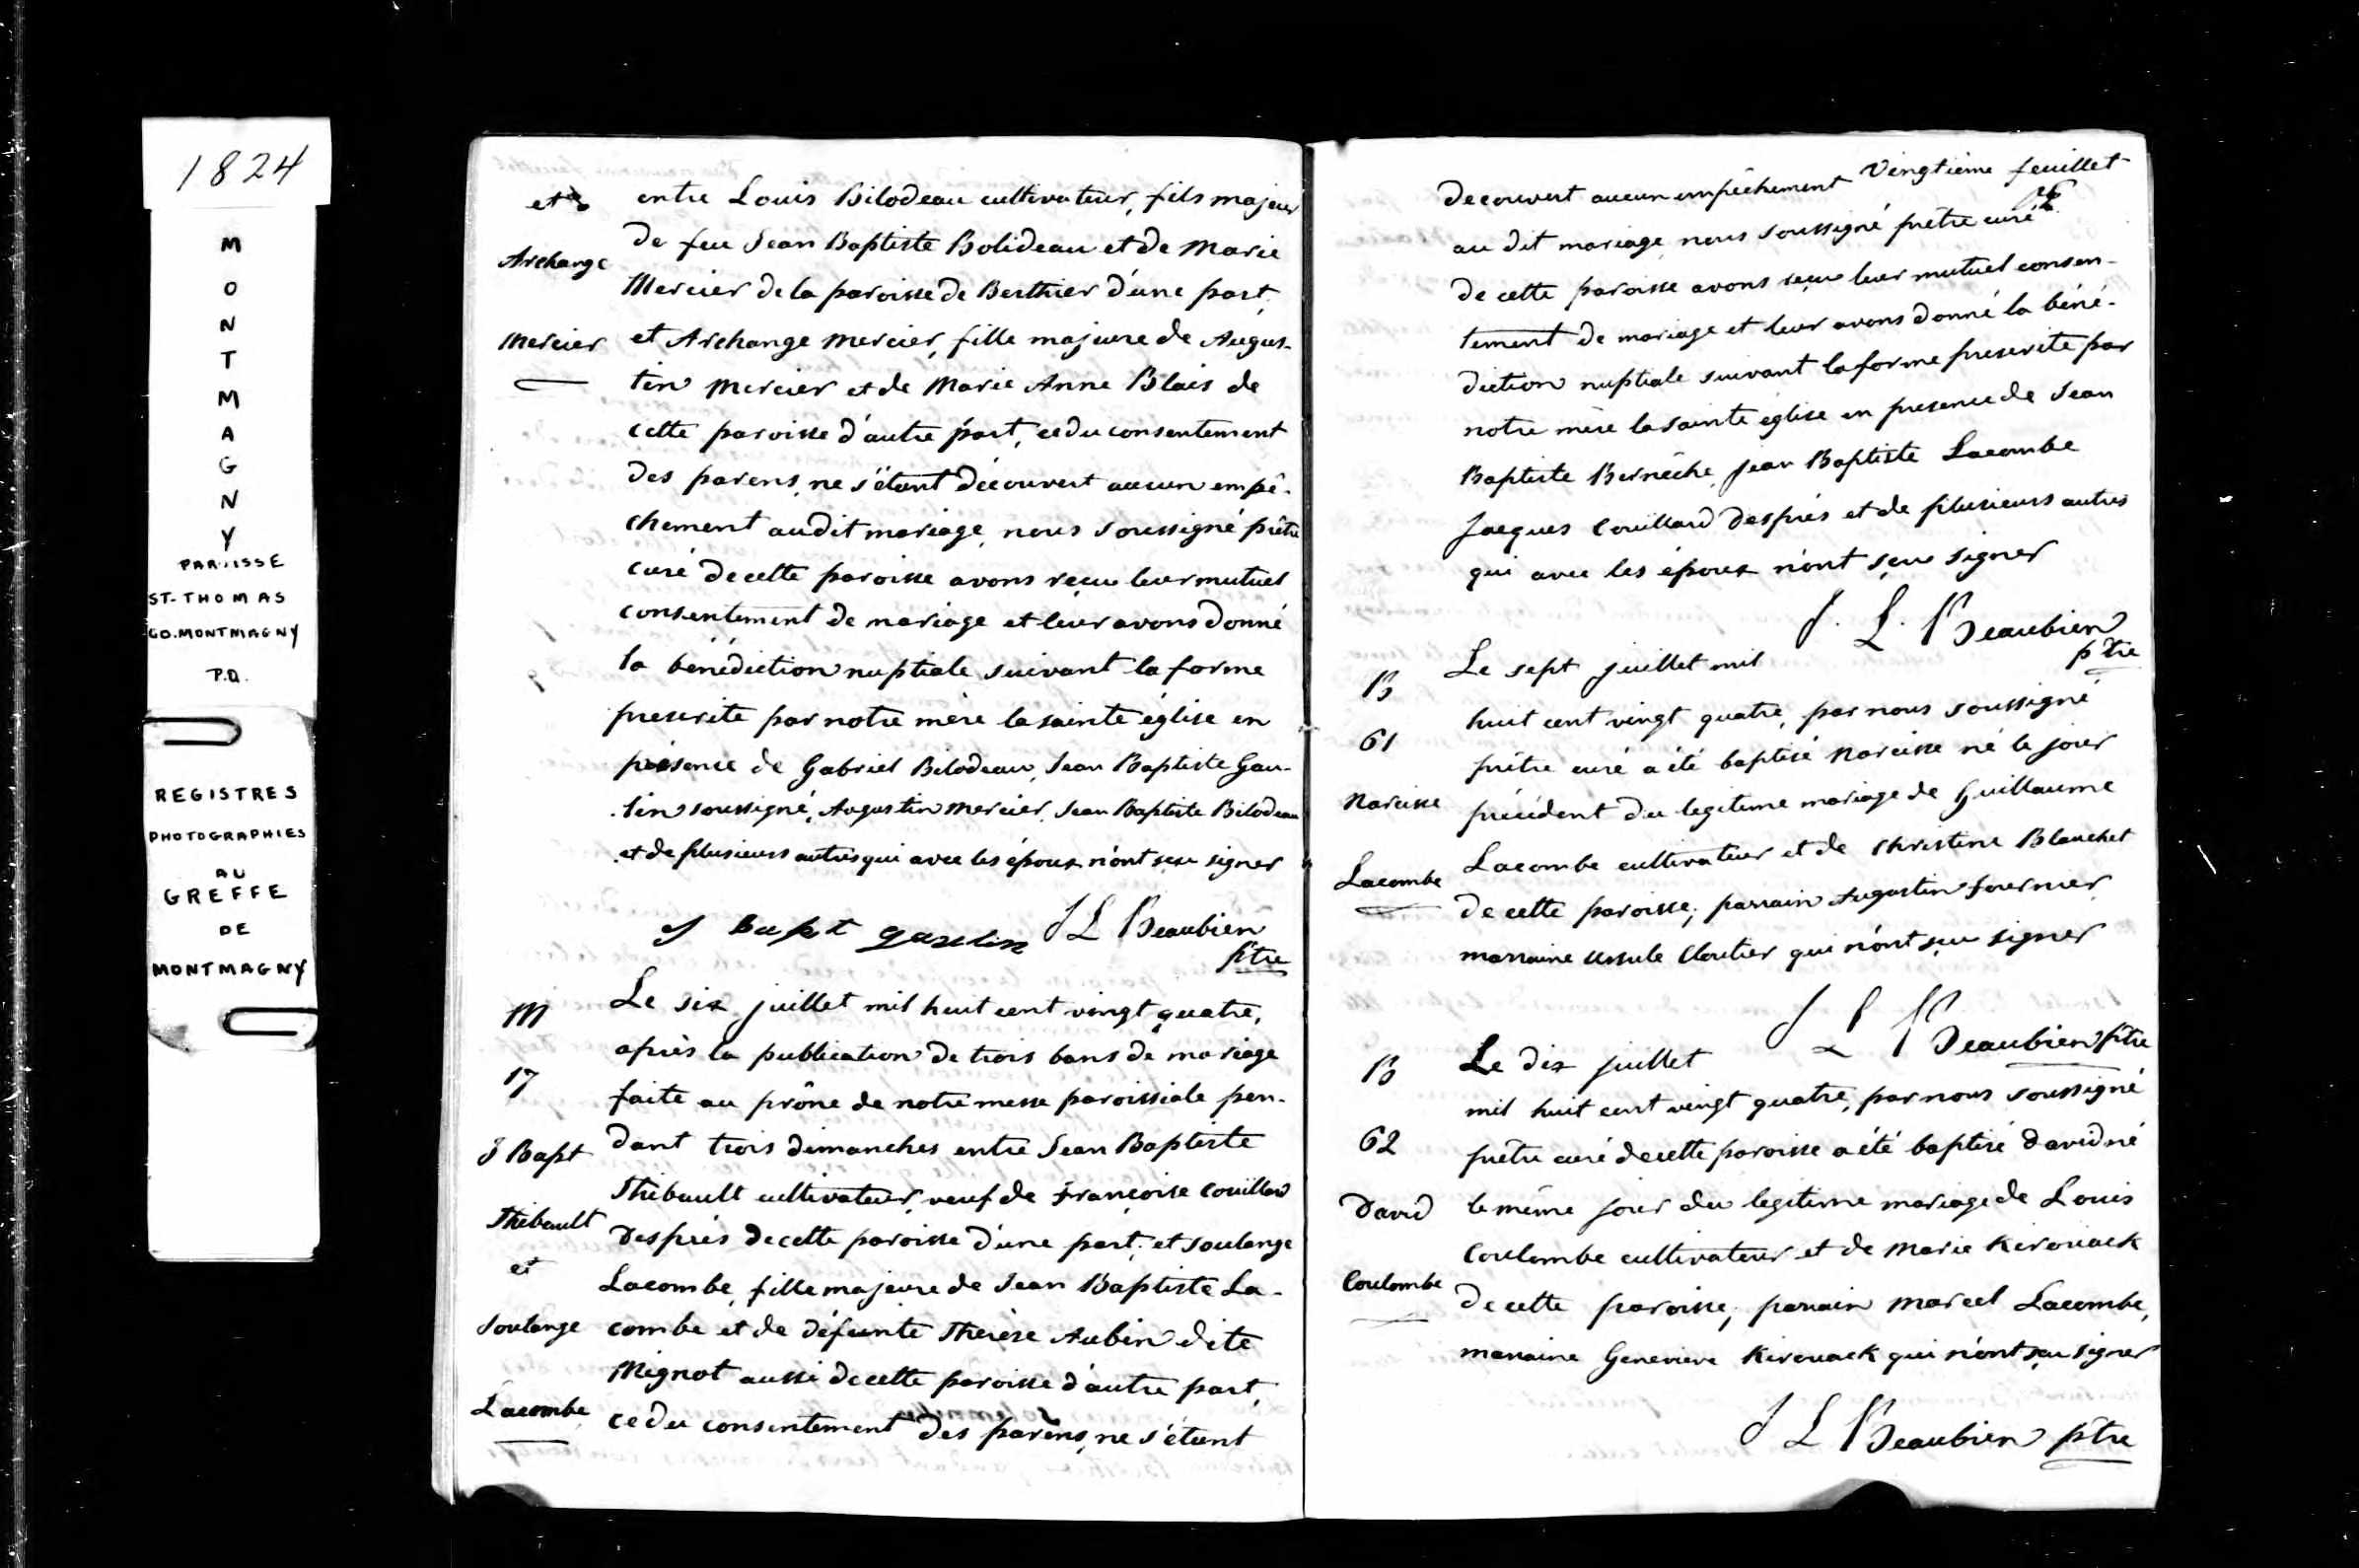 1824
M
O
N
T
M
A
G
N
Y
PAROISSE
ST-THOMAS
CO. MONTMAGNY
P.Q.
REGISTRES
PHOTOGRAPHIES
AU
GREFFE
DE
MONTMAGNY
et
Archange
Mercier
entre Louis Bilodeau cultivateur, fils majeur
de feu Jean Baptiste Bolideau et de Marie
Mercier de la paroisse de Berthier d'une part,
et Archange Mercier, fille majeure de Augus-
tin Mercier et de Marie Anne Blais de
cette paroisse d'autre part, ce du consentement
des parens, ne s'étant découvert aucun empê-
chement audit mariage, nous soussigné prêtre
curé de cette paroisse avons reçu leur mutuel
consentement de mariage et leur avons donné
la bénédiction nuptiale suivant la forme
prescrite par notre mère la sainte église en
présence de Gabriel Bilodeau, Jean Baptiste Gau-
lin soussigné, Augustin Mercier, Jean Baptiste Bilodeau
et de plusieurs autres qui avec les époux n'ont seu signer
J Bapt JL Beaubien
ptre
M
17
J Bapt
Thibault
et
Soulange
Lacombe
Le six juillet mil huit cent vingt quatre,
après la publication de trois bans de mariage
faite au prône de notre messe paroissiale pen-
dant trois dimanches entre Jean Baptiste
Thibault cultivateur, veuf de Françoise Couillard
Després de cette paroisse d'une part; et Soulange
Lacombe, fille majeure de Jean Baptiste La-
combe et de défunte Thérèse Aubin dite
Mignot aussi de cette paroisse d'autre part,
ce du consentement des parens, ne s'étant
Vingtième feuillet
decouvert aucun empêchement
au dit mariage, nous soussigné prêtre curé
de cette paroisse avons reçu leur mutuel consen-
tement de mariage et leur avons donné la béné-
diction nuptiale suivant la forme prescrite par
notre mère la sainte église en presence de Jean
Baptiste Bernèche, Jean Baptiste Lacombe
Jacques Couillard Després et de plusieurs autres
qui avec les époux n'ont sçeu signer
J. L. Beaubien
ptre
B
61
Narcisse
Lacombe
Le sept juillet mil
huit cent vingt quatre, par nous soussigné
prêtre curé a été baptisé Narcisse né le jour
précédent du legitime mariage de Guillaume
Lacombe cultivateur et de Christine Blanchet
de cette paroisse; parrain Augustin Fournier
marraine Ursule Cloutier qui n'ont sçu signer
J L Beaubien ptre
B
62
David
Coulombe
Le dix juillet
mil huit cent vingt quatre, par nous soussigné
prêtre curé de cette paroisse a été baptisé David né
le même jour du legitime mariage de Louis
Coulombe cultivateur et de Marie Kirouack
de cette paroisse; parrain Marcel Lacombe,
marraine Genevieve Kirouack qui n'ont sçu signer
J L Beaubien ptre